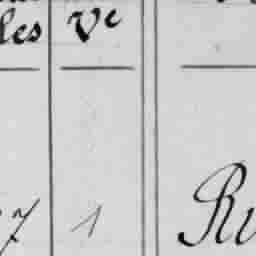 les Vᵉ
7 1 Ru